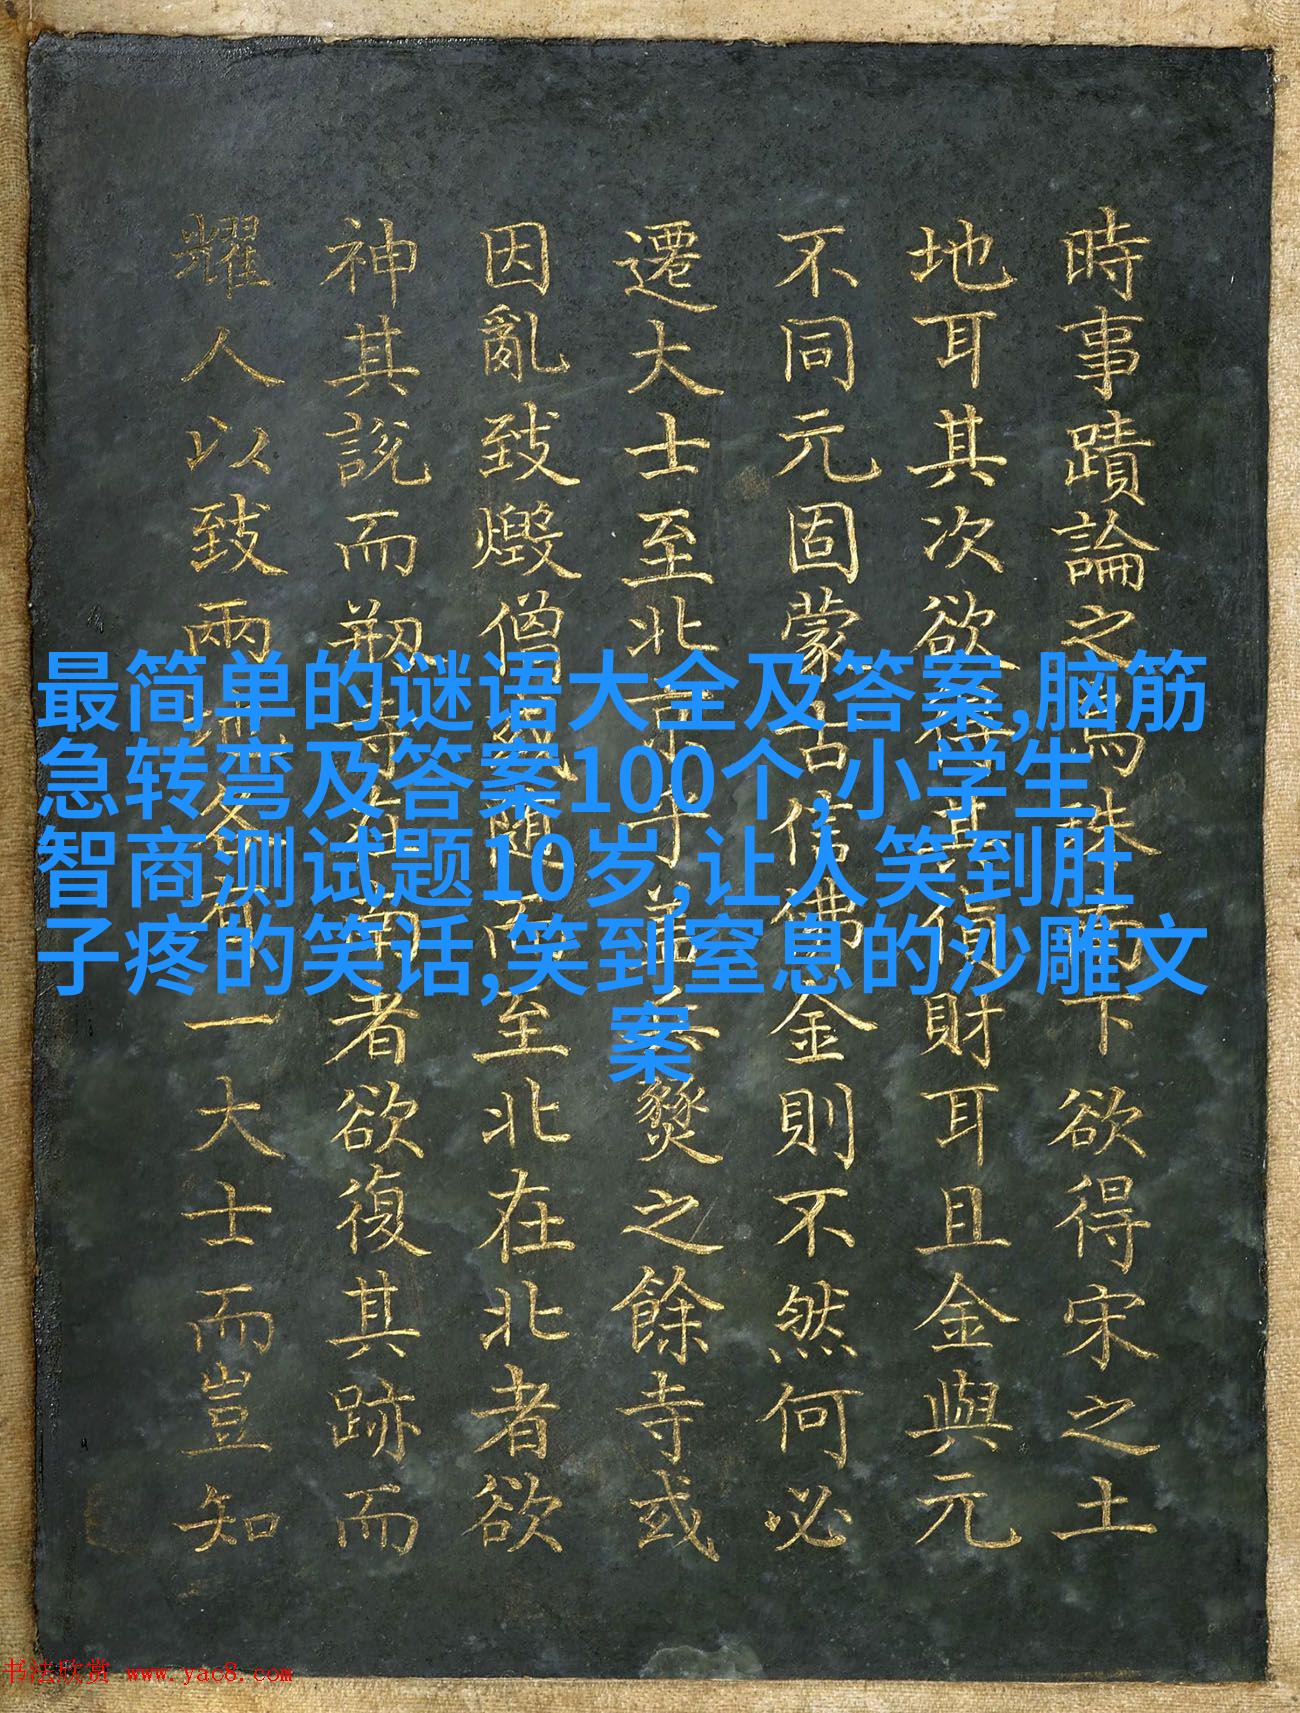 時事蹟論之而下欲得宋之土
地耳其次欲得其財耳且金與元
不同元固蒙古信佛金則不然何必
遷大士至北京乎弟兵燹之餘寺或
因亂致燬僧或隨而至北在北者欲
神其說而刱寺在南者欲復其跡而
耀人以致兩地各有一大士而豈知
最简单的谜语大全及答案,脑筋
急转弯及答案100个,小学生
智商测试题10岁,让人笑到肚
子疼的笑话,笑到窒息的沙雕文
案
书法欣赏 www.yac8.com